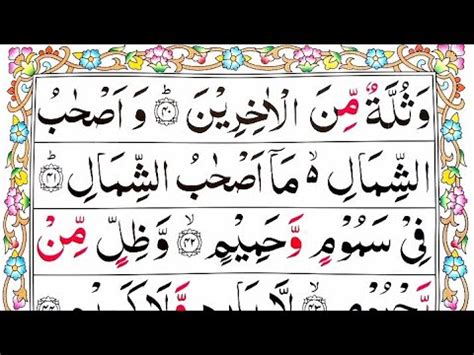 وَثُلَّةٌ مِّنَ الْاٰخِرِيْنَ ؕ﴿۴۰﴾ وَ اَصْحٰبُ
الشِّمَالِ ۙ۬ مَاۤ اَصْحٰبُ الشِّمَالِ ؕ﴿۴۱﴾
فِيْ سَمُوْمٍ وَّ حَمِيْمٍ ۙ﴿۴۲﴾ وَّظِلٍّ مِّنْ
يَّحْمُوْمٍ ۙ﴿۴۳﴾ لَّا بَارِدٍ وَّلَا كَرِيْمٍ ﴿۴۴﴾